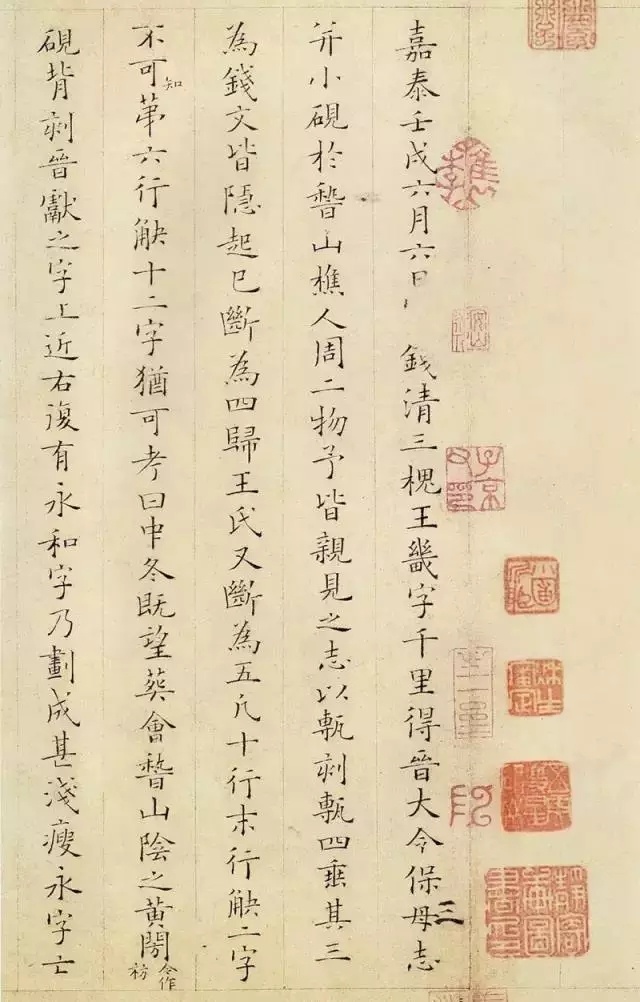 嘉泰壬戌六月六日錢清三槐王畿字千里得晉大令保母志
并小硯於稽山樵人周二物予皆親見之志以甎刻甎四垂其三
為錢文皆隱起已斷為四歸王氏又斷為五凡十行末行缺二字
不可知第六行缺十二字猶可考曰中冬既望葬會稽山陰之黃閍今作枋
硯背刻晉獻之字上近右復有永和字乃劃成甚淺瘦永字亡
三
子京